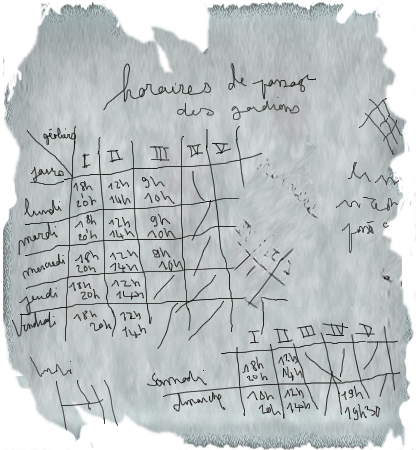 horaires de passage
des gardiens
geôliers I II III IV V
jours
lundi 18h 20h 12h 14h 9h 10h
mardi 18h 20h 12h 14h 9h 10h
mercredi 18h 20h 12h 14h 9h 10h
jeudi 18h 20h 12h 14h
Vendredi 18h 20h 12h 14h
I II III IV V
Samedi 18h 20h 12h 14h
dimanche 18h 20h 12h 14h 19h 19h30